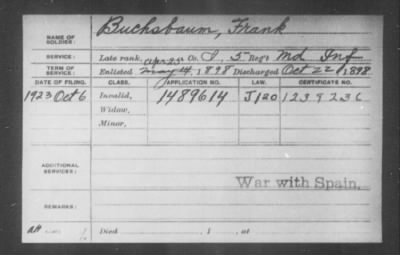 NAME OF SOLDIER: Buchsbaum, Frank
SERVICE: Late rank, Co. I, 5 Reg't Md Inf
TERM OF SERVICE: Enlisted Apr 25 May 14, 1898 Discharged Oct 22, 1898
DATE OF FILING. CLASS. APPLICATION NO. LAW. CERTIFICATE NO.
1923 Oct 6 Invalid, 1489614 J 120 1239236
Widow,
Minor,
ADDITIONAL SERVICES:
War with Spain.
REMARKS:
Died , 1 , at